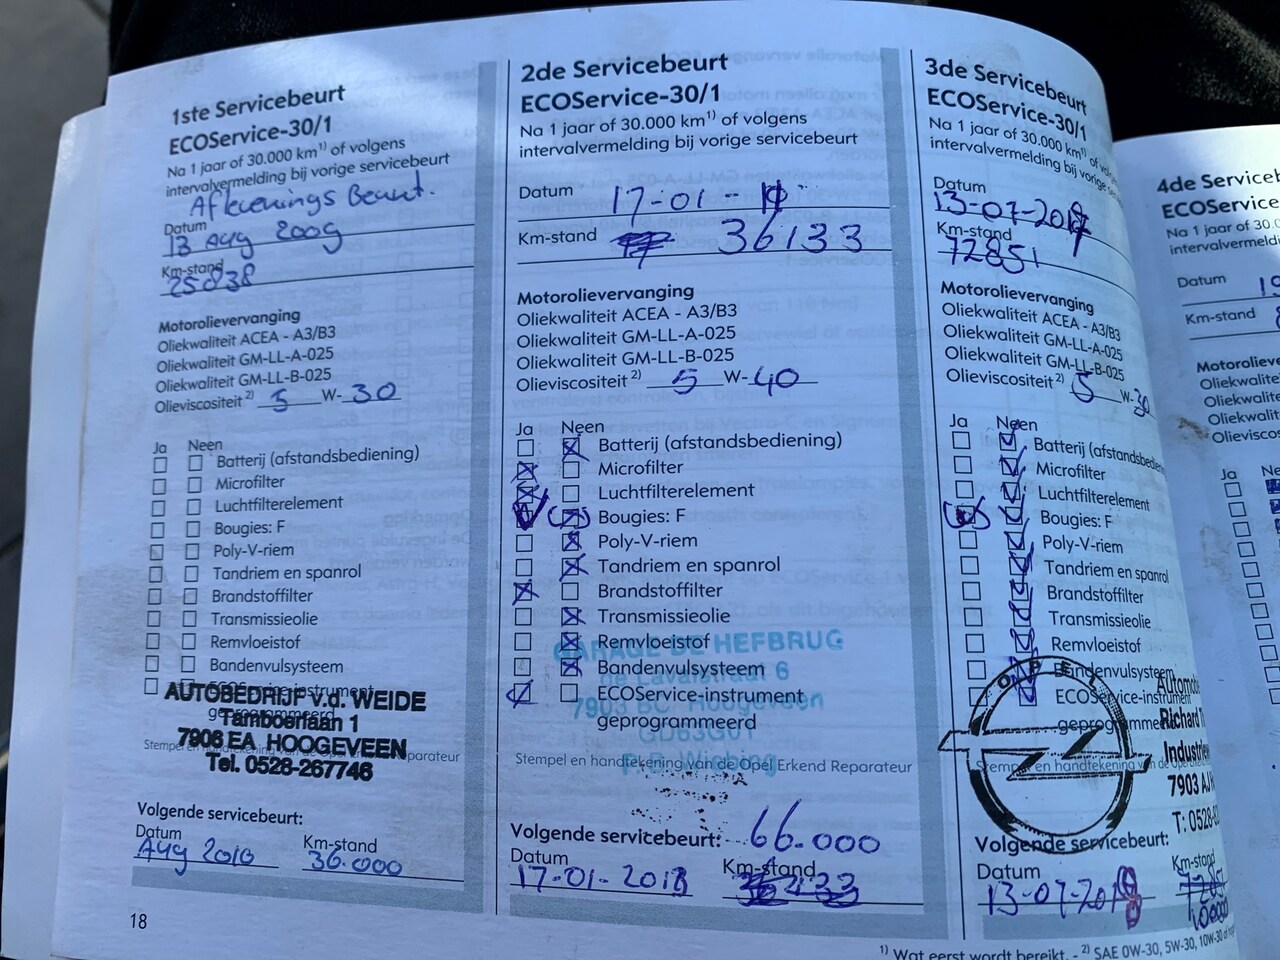 1ste Servicebeurt
ECOService-30/1
Na 1 jaar of 30.000 km1) of volgens
intervalvermelding bij vorige servicebeurt
Afleverings Beurt.
Datum
13 Aug 2009
Km-stand
25838
Motorolievervanging
Oliekwaliteit ACEA - A3/B3
Oliekwaliteit GM-LL-A-025
Oliekwaliteit GM-LL-B-025
Olieviscositeit 2) 5 W- 30
Ja Neen
Batterij (afstandsbediening)
Microfilter
Luchtfilterelement
Bougies: F
Poly-V-riem
Tandriem en spanrol
Brandstoffilter
Transmissieolie
Remvloeistof
Bandenvulsysteem
AUTOBEDRIJF v.d. WEIDE
Tamboerlaan 1
7906 EA HOOGEVEEN
Tel. 0528-267746
Volgende servicebeurt:
Datum Km-stand
Aug 2010 36.000
18
2de Servicebeurt
ECOService-30/1
Na 1 jaar of 30.000 km1) of volgens
intervalvermelding bij vorige servicebeurt
Datum 17-01-
Km-stand 36133
Motorolievervanging
Oliekwaliteit ACEA - A3/B3
Oliekwaliteit GM-LL-A-025
Oliekwaliteit GM-LL-B-025
Olieviscositeit 2) 5 W- 40
Ja Neen
Batterij (afstandsbediening)
Microfilter
Luchtfilterelement
Bougies: F
Poly-V-riem
Tandriem en spanrol
Brandstoffilter
Transmissieolie
Remvloeistof
Bandenvulsysteem
ECOService-instrument
geprogrammeerd
GARAGE DE HEFBRUG
de Lavalstraat 6
7903 BC Hoogeveen
Stempel en handtekening van de Opel Erkend Reparateur
Volgende servicebeurt: 66.000
Datum Km-stand
17-01-
3de Servicebeurt
ECOService-30/1
Na 1 jaar of 30.000 km1) of
intervalvermelding bij vorige
Datum
13-07-
Km-stand
72851
Motorolievervanging
Oliekwaliteit ACEA - A3/B3
Oliekwaliteit GM-LL-A-025
Oliekwaliteit GM-LL-B-025
Olieviscositeit 2) 5 W- 30
Ja Neen
Batterij
Microfilter
Luchtfilterelement
Bougies: F
Poly-V-riem
Tandriem en spanrol
Brandstoffilter
Transmissieolie
Remvloeistof
Bandenvulsysteem
ECOService-instrument
OPEL
Richard
7903
T: 0528-
Volgende servicebeurt:
Datum Km-stand
13-07-
1) Wat eerst wordt bereikt. - 2) SAE 0W-30, 5W-30, 10W-30
4de
ECOService
Na 1 jaar of
Datum
Km-stand
Ja